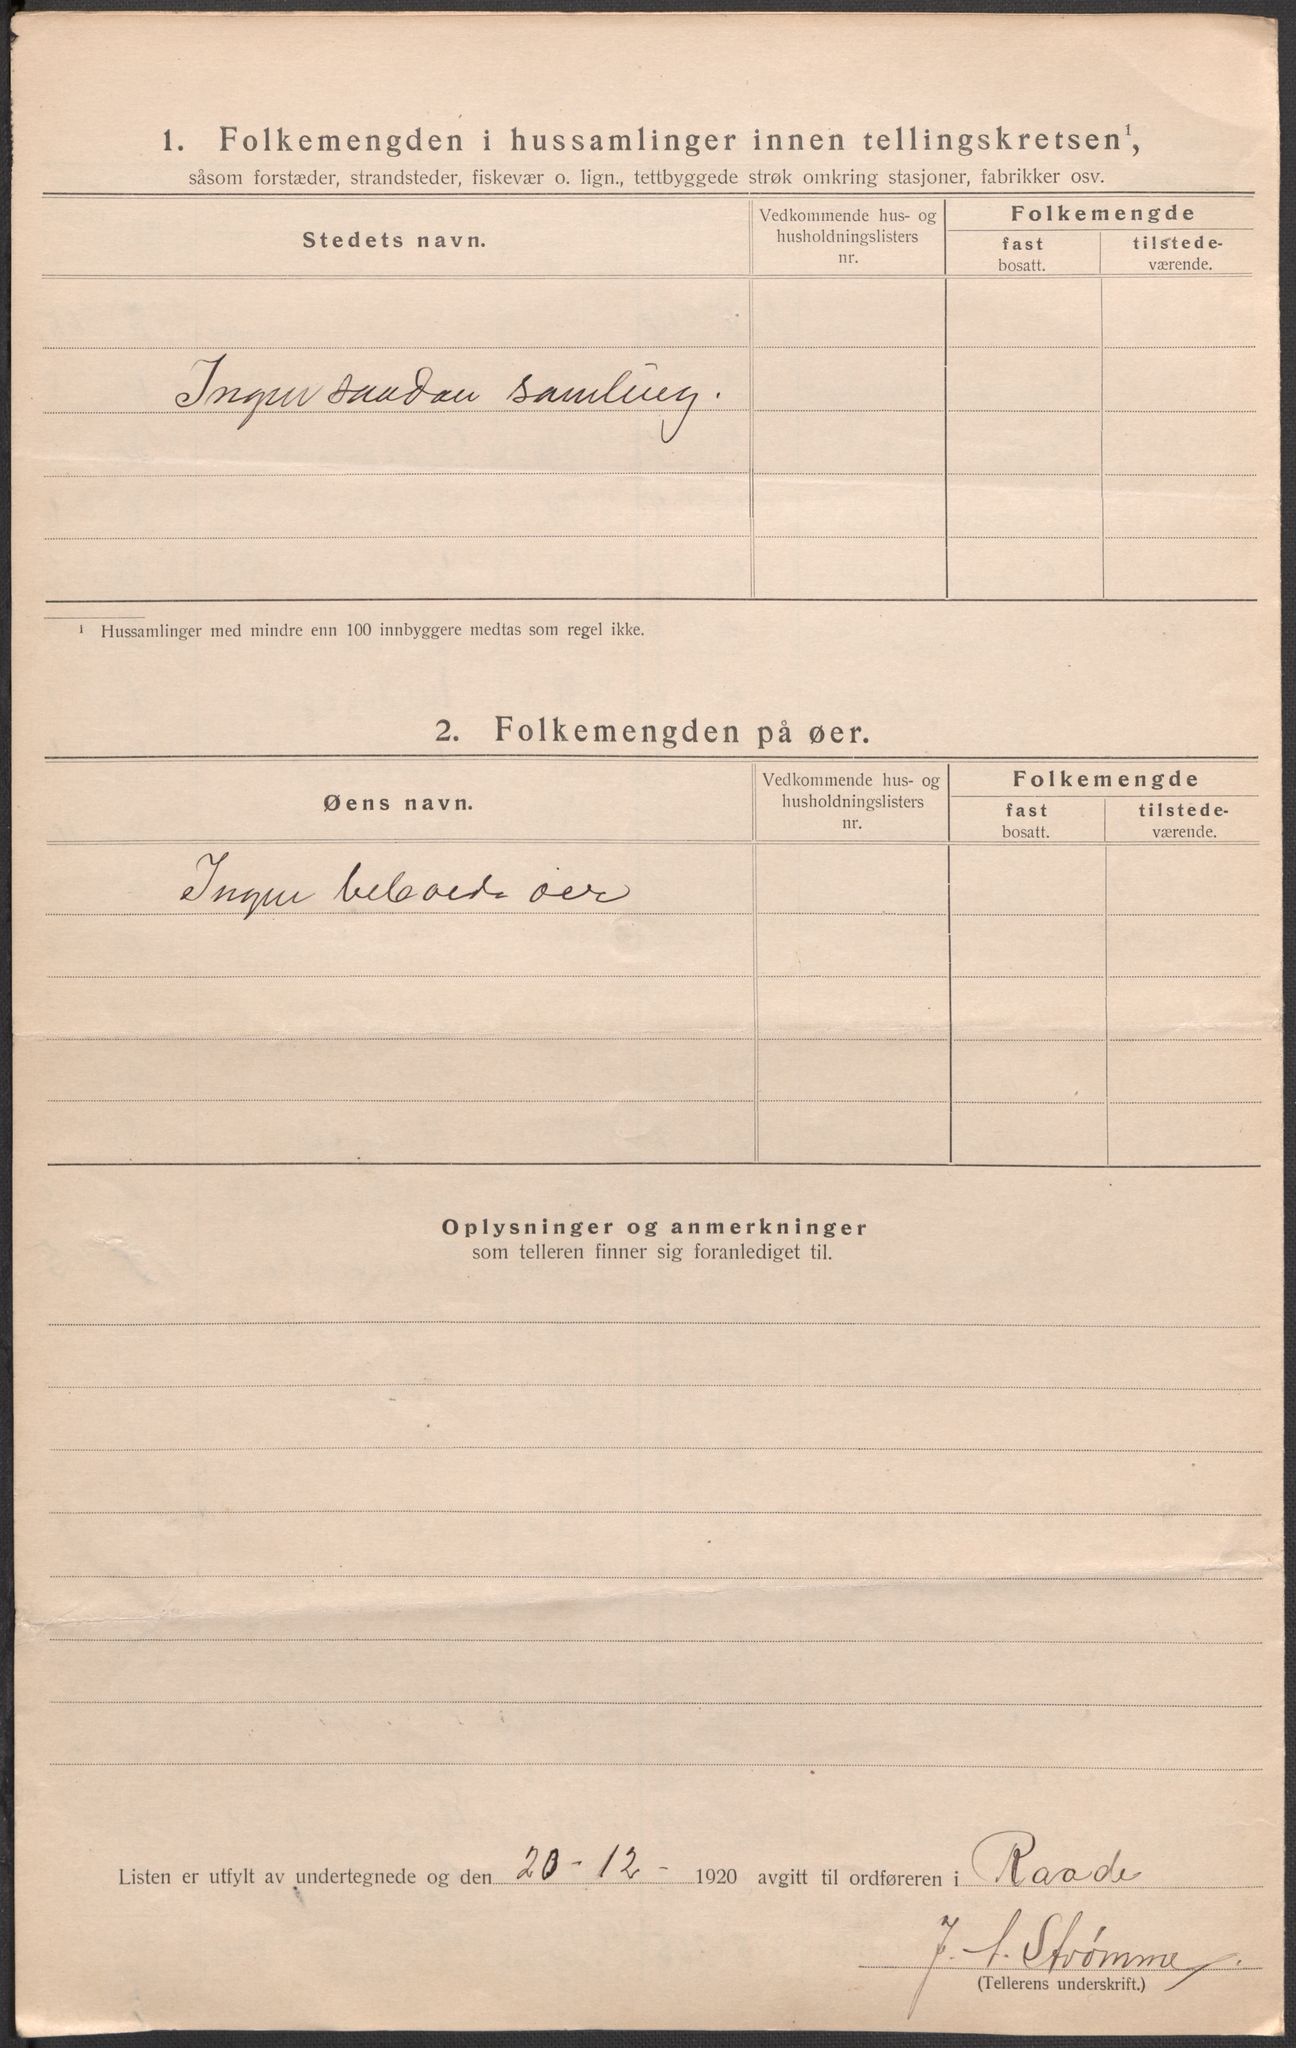 1. Folkemengden i hussamlinger innen tellingskretsen¹,
såsom forstæder, strandsteder, fiskevær o. lign., tettbyggede strøk omkring stasjoner, fabrikker osv.
Stedets navn.
Vedkommende hus- og
husholdningslisters
nr.
Folkemengde
fast
bosatt.
tilstede-
værende.
Ingen saadan samling.
¹ Hussamlinger med mindre enn 100 innbyggere medtas som regel ikke.
2. Folkemengden på øer.
Øens navn.
Vedkommende hus- og
husholdningslisters
nr.
Folkemengde
fast
bosatt.
tilstede-
værende.
Ingen beboede øer
Oplysninger og anmerkninger
som telleren finner sig foranlediget til.
Listen er utfylt av undertegnede og den 20 - 12 - 1920 avgitt til ordføreren i Raade
J. A. Strømme.
(Tellerens underskrift.)